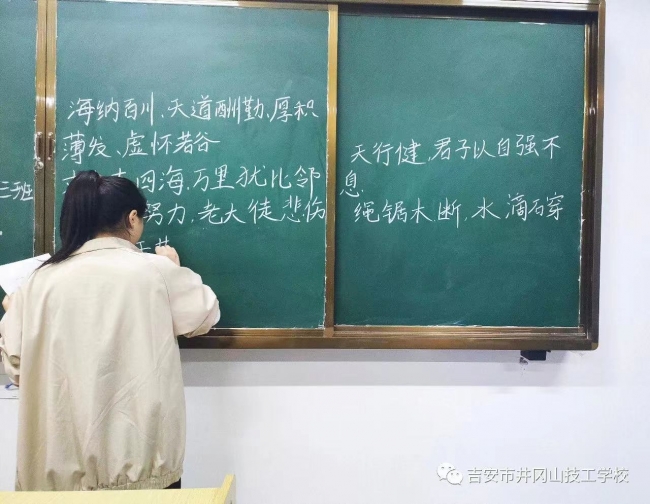 海纳百川、天道酬勤、厚积
薄发、虚怀若谷
四海,万里犹比邻
努力,老大徒悲伤
三班
天行健,君子以自强不
息
绳锯木断,水滴石穿
吉安市井冈山技工学校